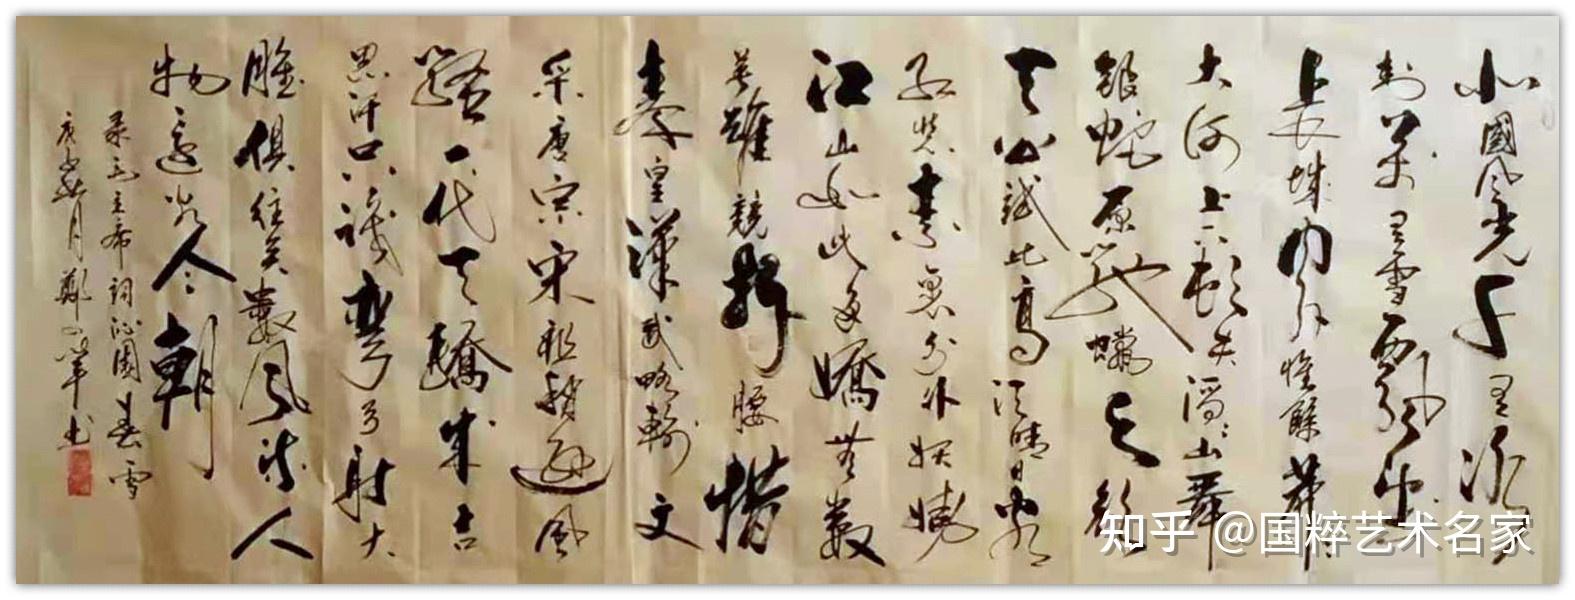 北國風光千里冰
封萬里雪飄望
長城内外惟餘莽莽
大河上下頓失滔滔山舞
銀蛇原馳蠟象欲
天公試比高須晴日看
紅裝素裹分外妖嬈
江山如此多嬌無數
英雄競折腰惜
秦皇漢武略輸文
采唐宗宋祖稍遜風
騷一代天驕成吉
思汗只識彎弓射大
雕俱往矣數風流人
物還看今朝
录毛主席詞沁園春雪
月鄭书
知乎 @国粹艺术名家